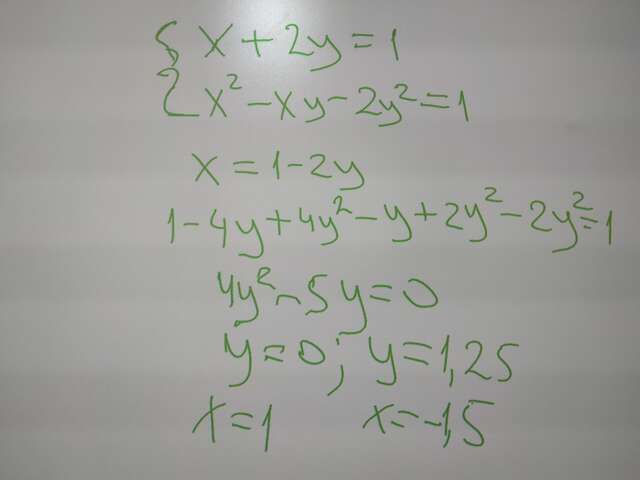 { x + 2y = 1
x² - xy - 2y² = 1
x = 1 - 2y
1 - 4y + 4y² - y + 2y² - 2y² = 1
4y² - 5y = 0
y = 0; y = 1,25
x = 1 x = -1,5